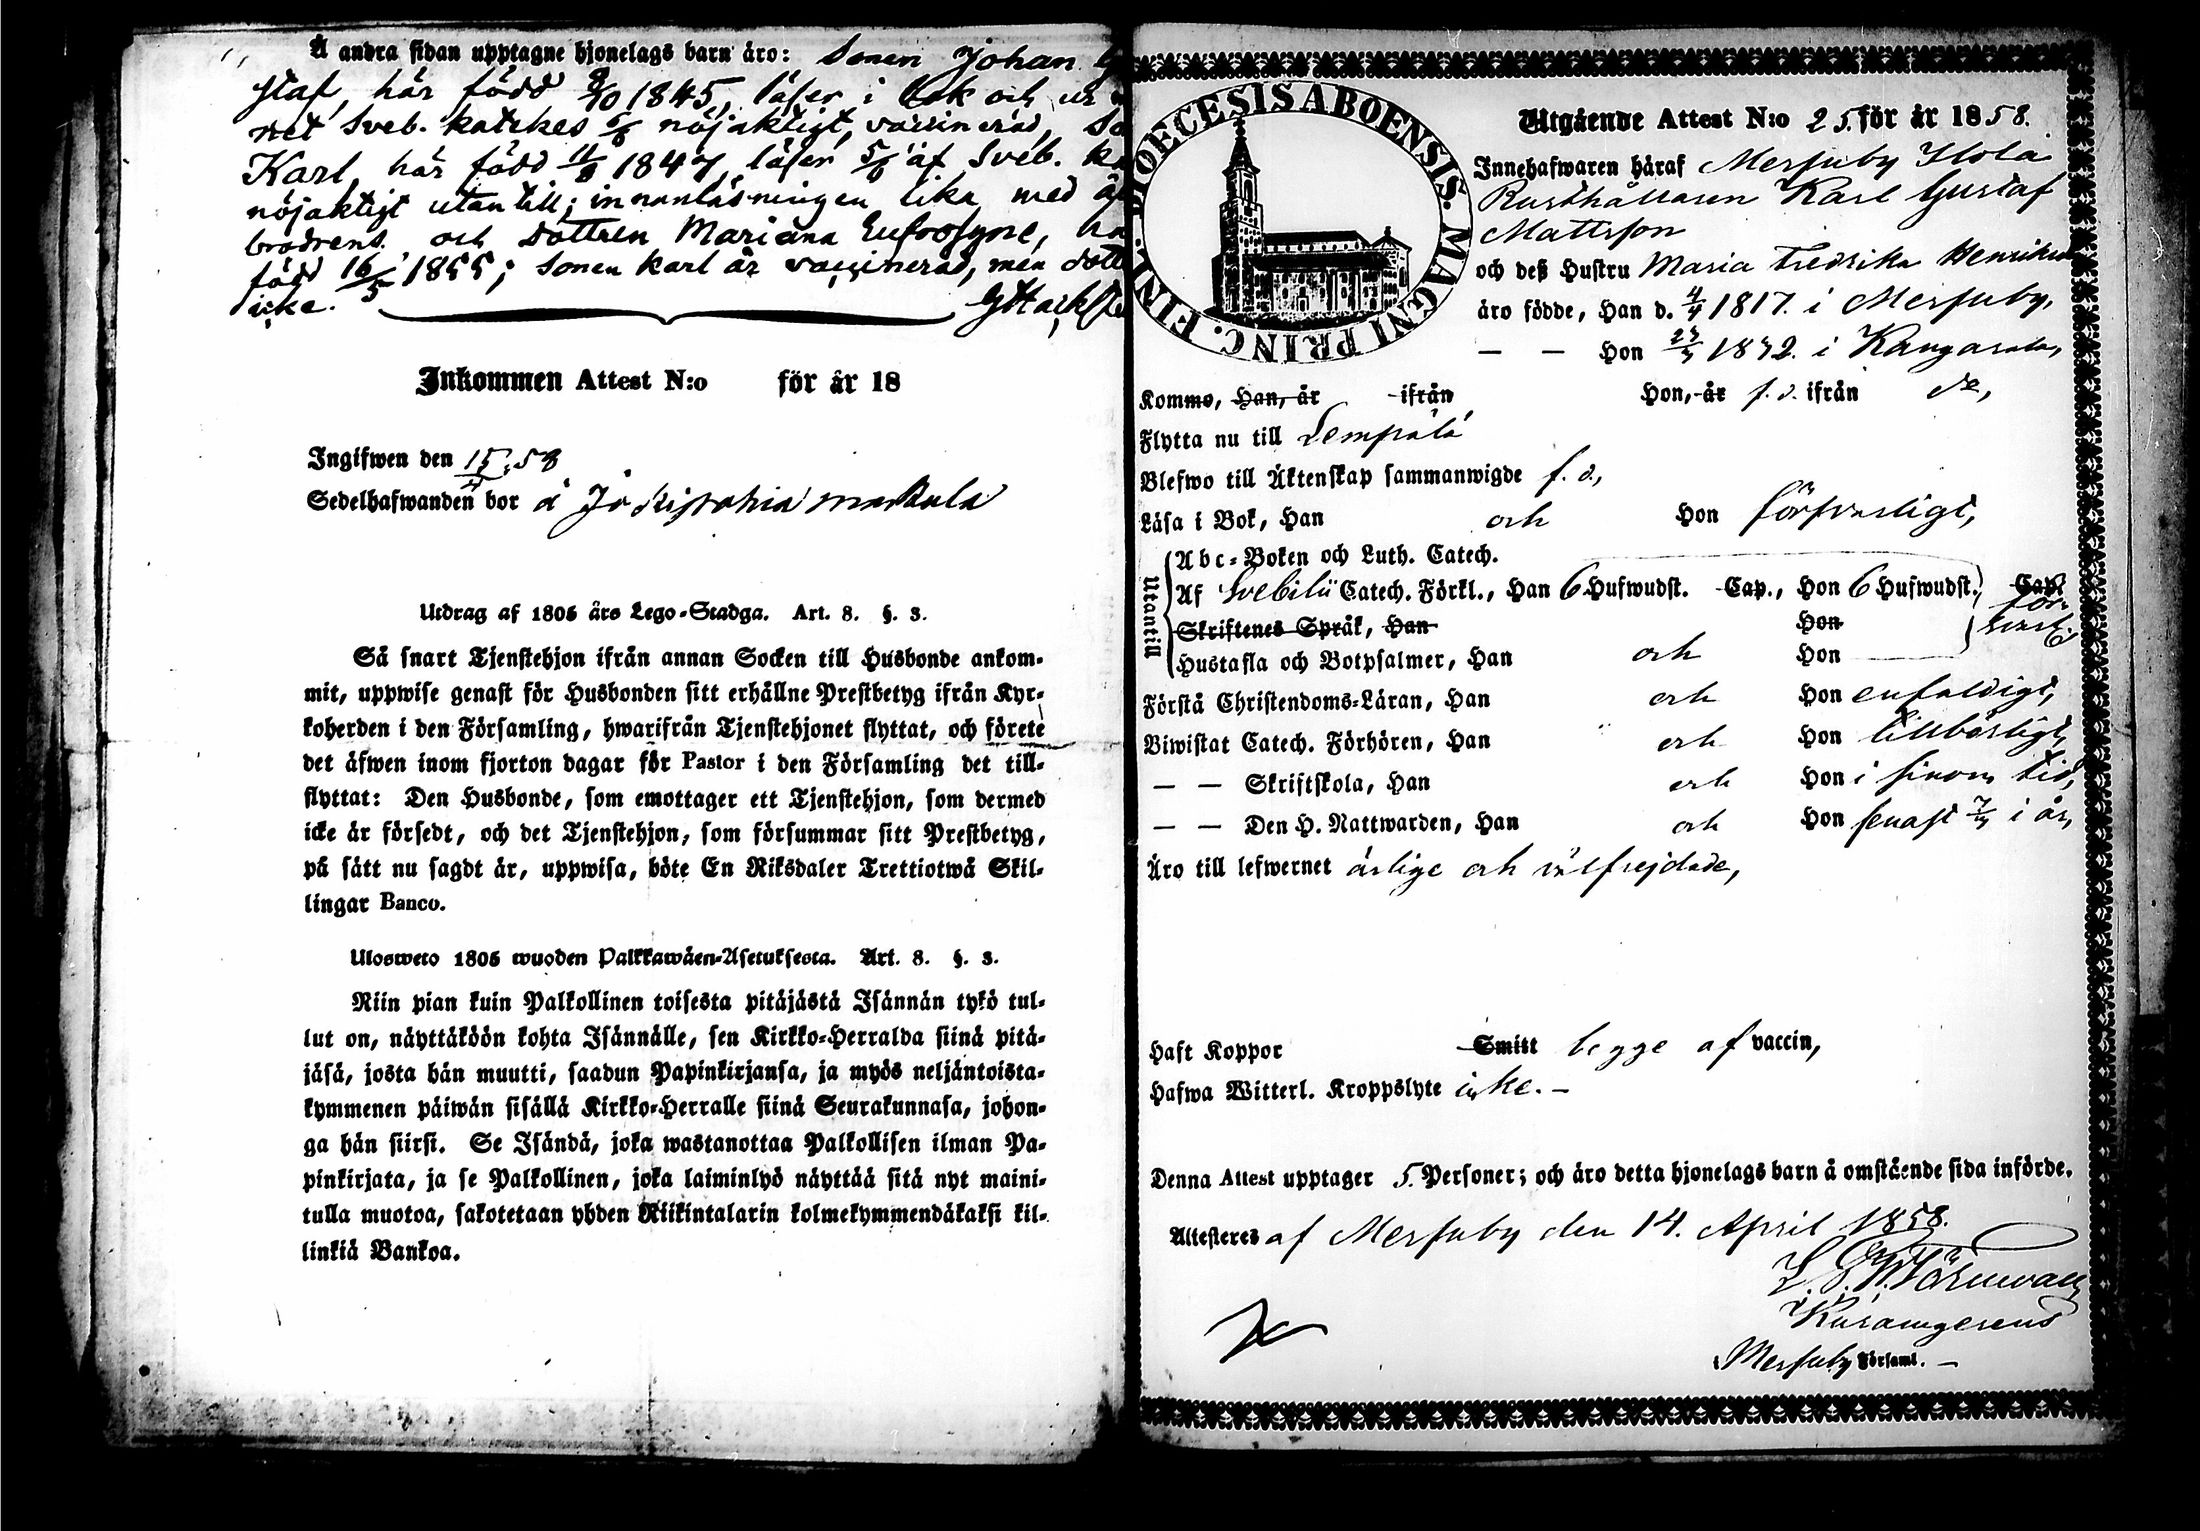 Å andra sidan upptagne hjonelags barn äro: Sonen Johan G
staf, här född 8/10 1845, läser i bok och ur
net Sveb. katekes 5/6 nöjaktigt, vaccinerad, So
Karl, här född 11/8 1847, läser 5/6 af Sveb. ka
nöjaktigt utantill; innanläsningen lika med ä
brodrens. och Dottren Mariana Eufrosyne, hä
född 16/5 1855; Sonen Karl är vaccinerad, men dott
icke.
Inkommen Attest N:o för år 18
Ingifwen den 15 58
Sedelhafwanden bor å Jokipohja
Utdrag af 1805 års Lego-Stadga. Art. 8. §. 3.
Så snart Tjenstehjon ifrån annan Socken till Husbonde ankom-
mit, uppwise genast för Husbonden sitt erhållne Prestbetyg ifrån Kyr-
koherden i den Församling, hwarifrån Tjenstehjonet flyttat, och förete
det äfwen inom fjorton dagar för Pastor i den Församling det till-
flyttat: Den Husbonde, som emottager ett Tjenstehjon, som dermed
icke är försedt, och det Tjenstehjon, som försummar sitt Prestbetyg,
på sätt nu sagdt är, uppwisa, böte En Riksdaler Trettiotwå Skil-
lingar Banco.
Ulosweto 1805 wuoden Palkkawäen-Asetuksesta. Art. 8. §. 3.
Niin pian kuin Palkollinen toisesta pitäjästä Isännän tykö tul-
lut on, näyttäköön kohta Isännälle, sen Kirkko-Herralda siinä pitä-
jäsä, josta hän muutti, saadun Papinkirjansa, ja myös neljäntoista-
kymmenen päiwän sisällä Kirkko-Herralle siinä Seurakunnasa, johon-
ga hän siirsi. Se Isändä, joka wastanottaa Palkollisen ilman Pa-
pinkirjata, ja se Palkollinen, joka laiminlyö näyttää sitä nyt maini-
tulla muotoa, sakotetaan yhden Riikintalarin kolmekymmendäkaksi kil-
linkiä Bankoa.
DIOECESIS ABOENSIS. MAGNI PRINC. FINL.
Utgående Attest N:o 25. för år 1858.
Innehafwaren häraf Messuby Ilola
Rusthållaren Karl Gustaf
Mattsson
och deß Hustru Maria Fredrika Henriks
äro födde, Han d. 4/4 1817. i Messuby,
— — Hon 1832. i Kangasala,
Komme, Han, är ifrån Hon, är f. d. ifrån do,
Flytta nu till Lempälä
Blefwo till Äktenskap sammanwigde f. d.,
Läsa i Bok, Han och Hon försvarligt,
Utantill
Abc-Boken och Luth. Catech.
Af Svebilii Catech. Förkl., Han 6 Hufwudst. Cap., Hon 6 Hufwudst. Cap.
Skriftenes Språk, Han Hon
Hustafla och Botpsalmer, Han och Hon
Förstå Christendoms-Läran, Han och Hon enfaldigt,
Biwistat Catech. Förhören, Han och Hon tillbörligt,
— — Skriftskola, Han och Hon i sinom tid,
— — Den H. Nattwarden, Han och Hon senast i år,
Äro till lefwernet ärlige och välfrejdade,
Haft Koppor Smitt begge af vaccin,
Hafwa Witterl. Kroppslyte icke. —
Denna Attest upptager 5. Personer; och äro detta hjonelags barn å omstående sida införde.
Attesteres af Messuby den 14. April 1858.
Messuby Församl. —